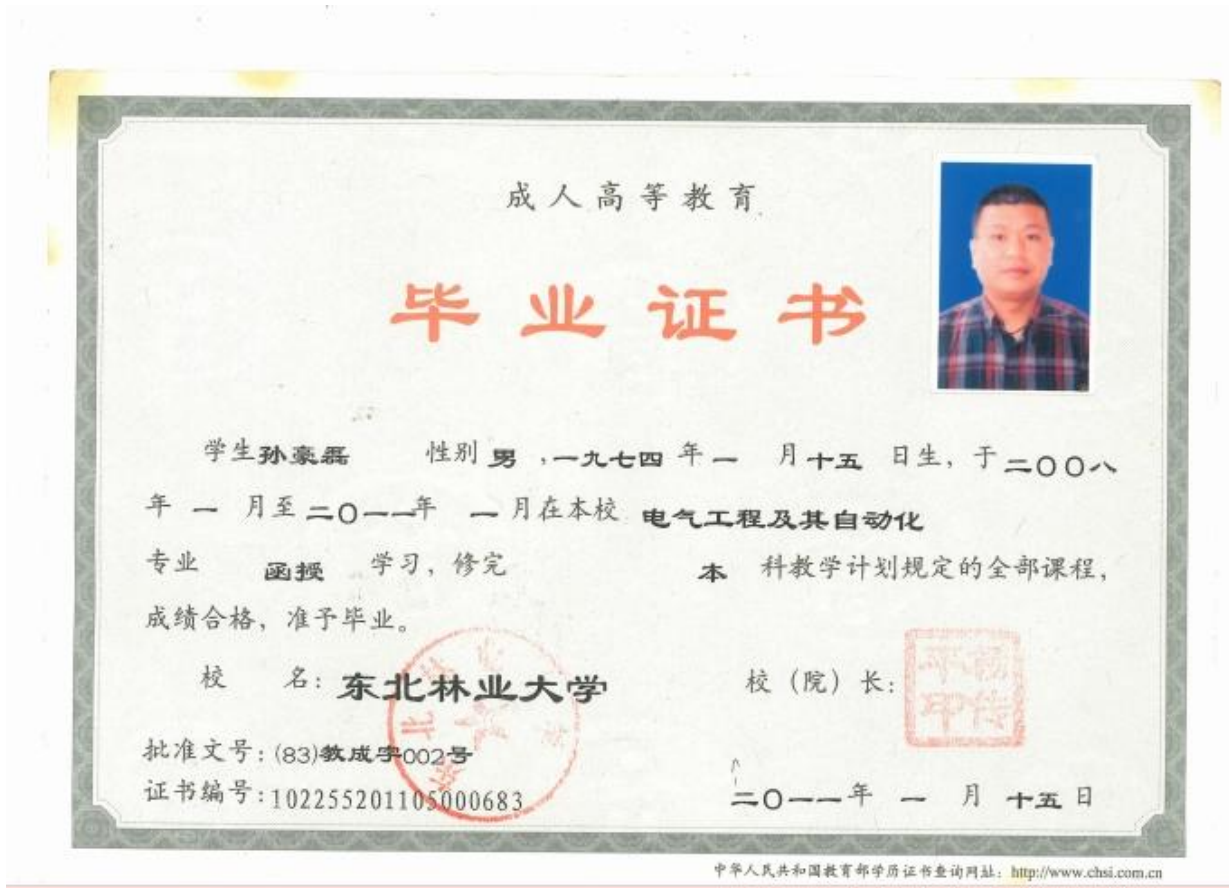 成人高等教育
毕业证书
学生孙豪磊 性别 男 ,一九七四 年 一 月 十五 日生, 于 二〇〇八
年 一 月至 二〇一一年 一 月在本校 电气工程及其自动化
专业 函授 学习, 修完 本 科教学计划规定的全部课程,
成绩合格, 准予毕业。
校 名: 东北林业大学 校 (院) 长:
杨传平印
批准文号: (83)教成字002号
证书编号: 102255201105000683 二〇一一年 一 月 十五 日
中华人民共和国教育部学历证书查询网址: http://www.chsi.com.cn